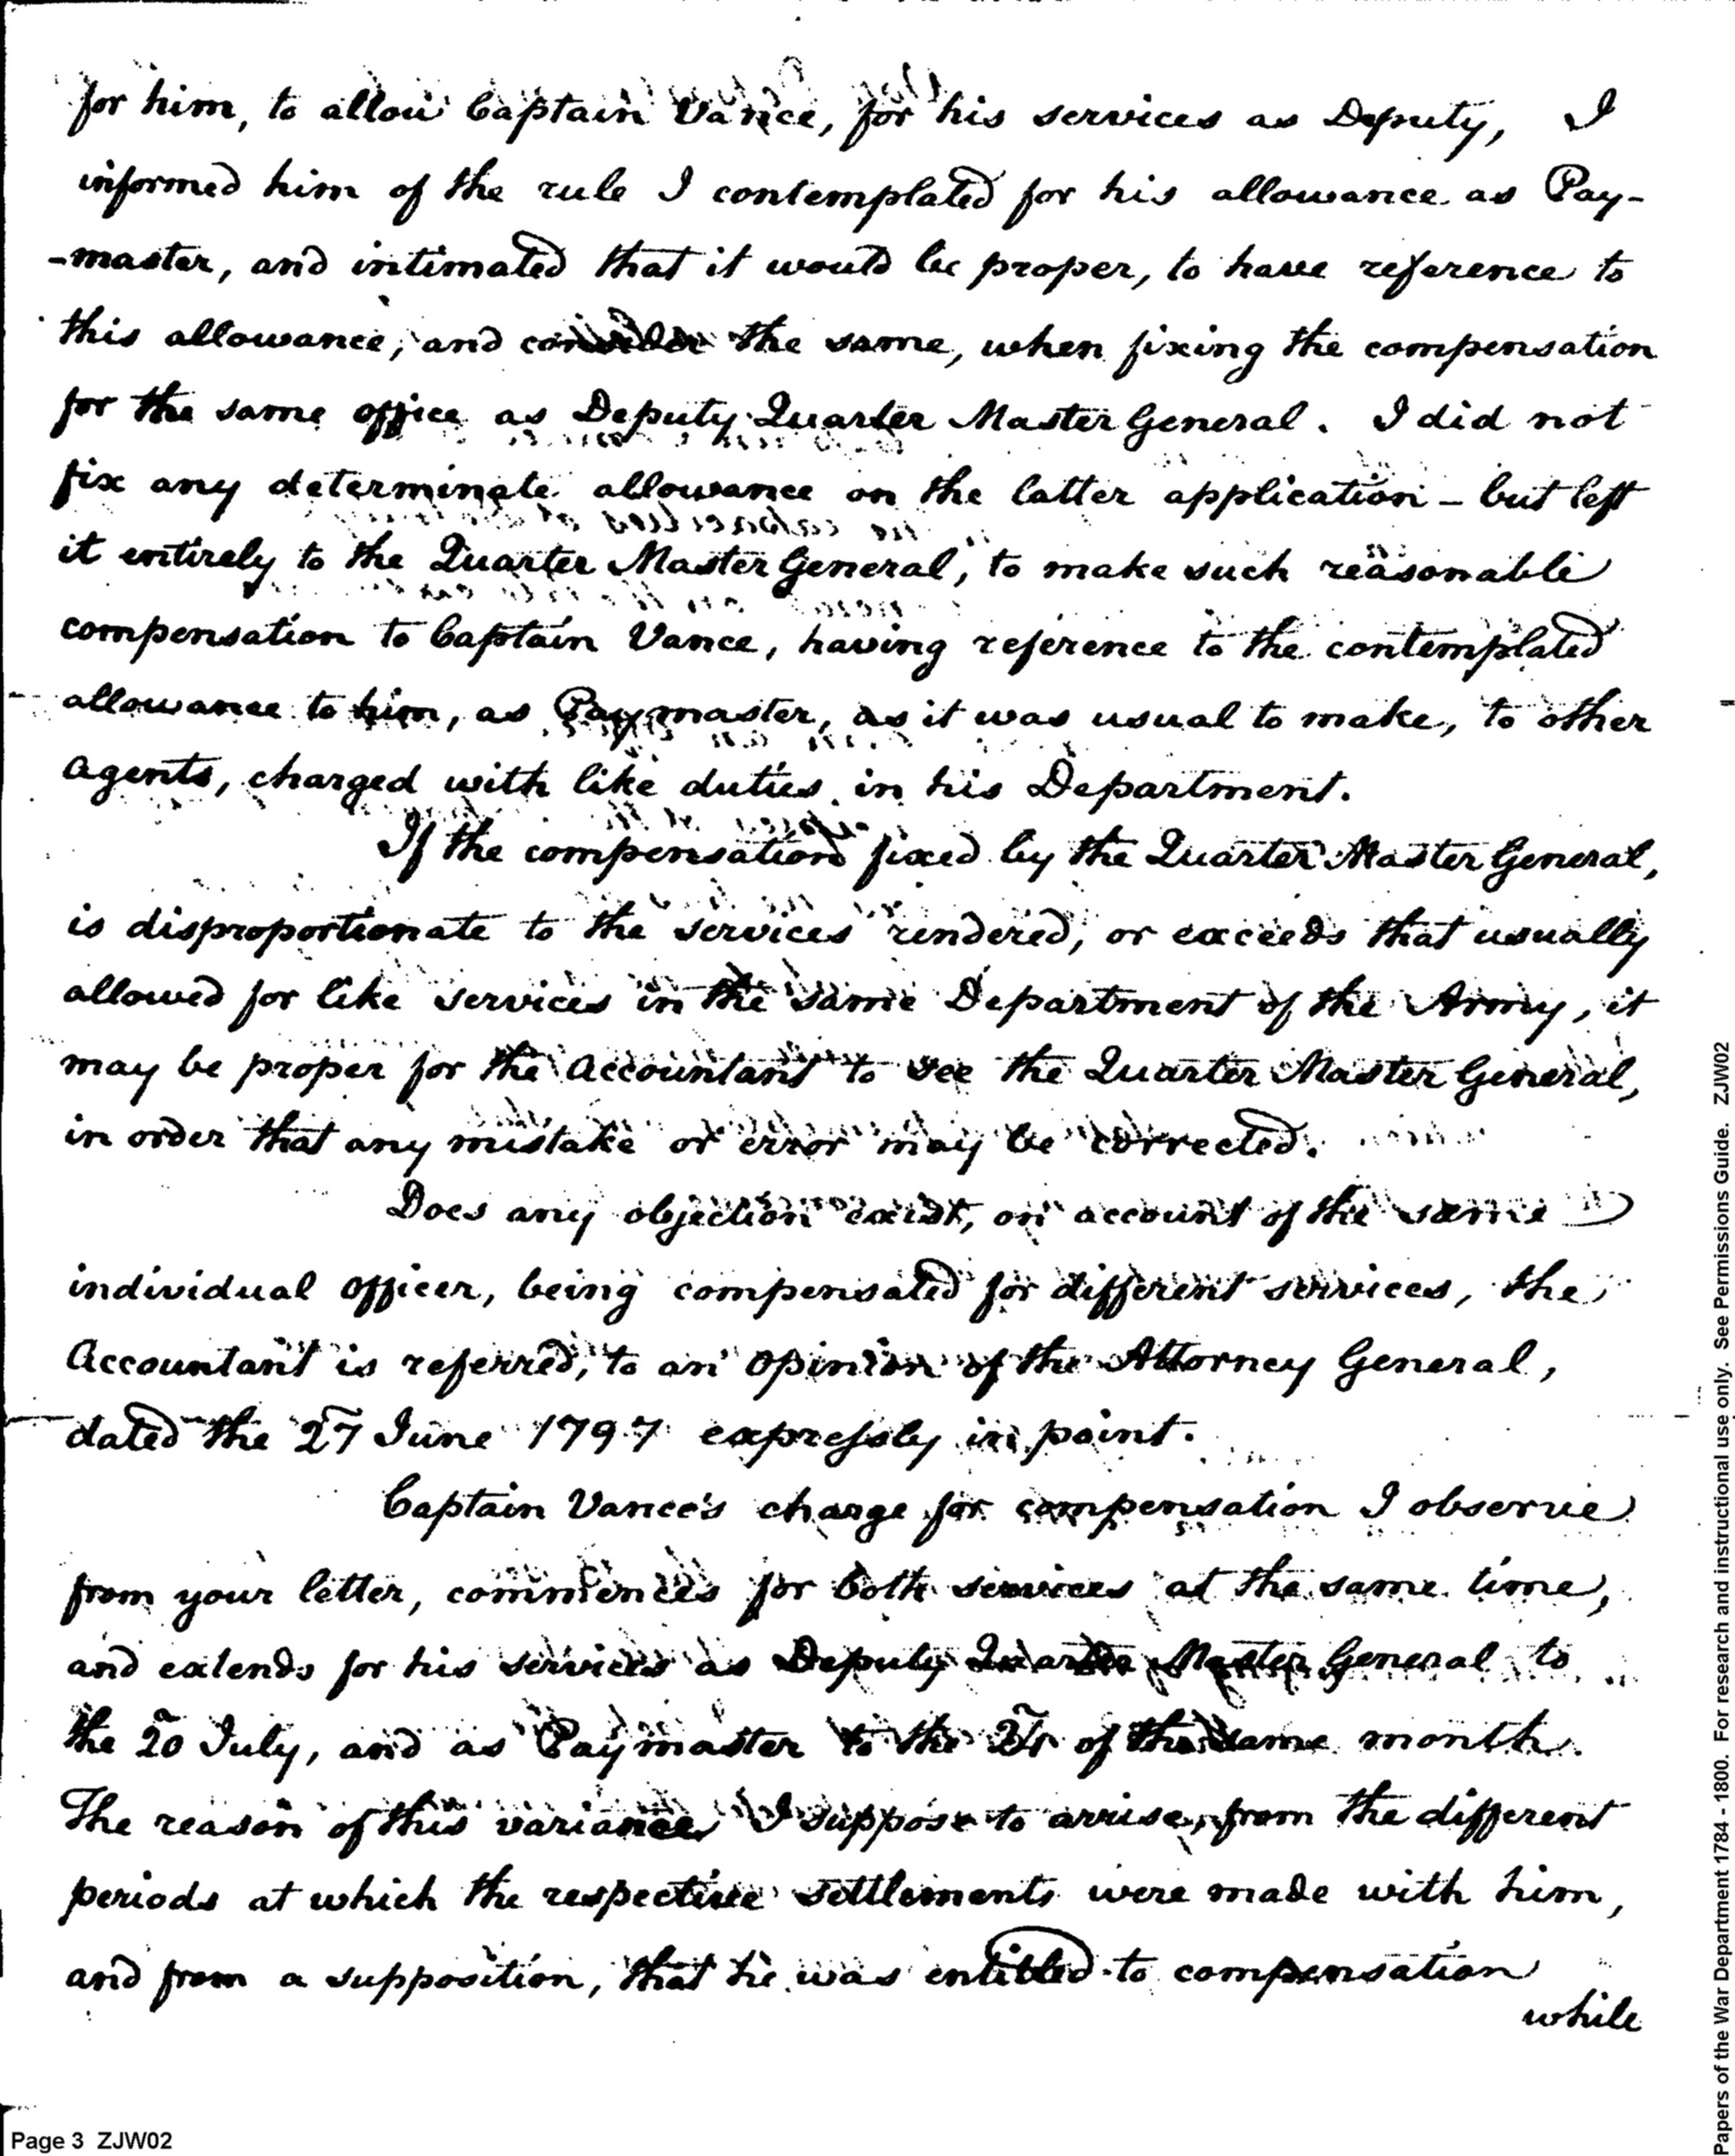 for him, to allow Captain Vance, for his services as Deputy, I
informed him of the rule I contemplated for his allowance as Pay-
-master, and intimated that it would be proper, to have reference to
this allowance, and consider the same, when fixing the compensation
for the same office as Deputy Quarter Master General. I did not
fix any determinate allowance on the latter application - but left
it entirely to the Quarter Master General, to make such reasonable
compensation to Captain Vance, having reference to the contemplated
allowance to him, as Paymaster, as it was usual to make, to other
agents, charged with like duties in his Department.
If the compensation fixed by the Quarter Master General,
is disproportionate to the services rendered, or exceeds that usually
allowed for like services in the same Department of the Army, it
may be proper for the Accountant to see the Quarter Master General,
in order that any mistake or error may be corrected.
Does any objection exist, on account of the same
individual officer, being compensated for different services, the
Accountant is referred, to an opinion of the Attorney General,
dated the 27 June 1797 expressly in point.
Captain Vance's charge for compensation I observe
from your letter, commences for both services at the same time,
and extends for his services as Deputy Quarter Master General to
the 20 July, and as Paymaster to the of the same month.
The reason of this variance I suppose to arrise, from the different
periods at which the respective settlements were made with him,
and from a supposition, that he was entitled to compensation
while
Page 3 ZJW02
Papers of the War Department 1784 - 1800. For research and instructional use only. See Permissions Guide. ZJW02